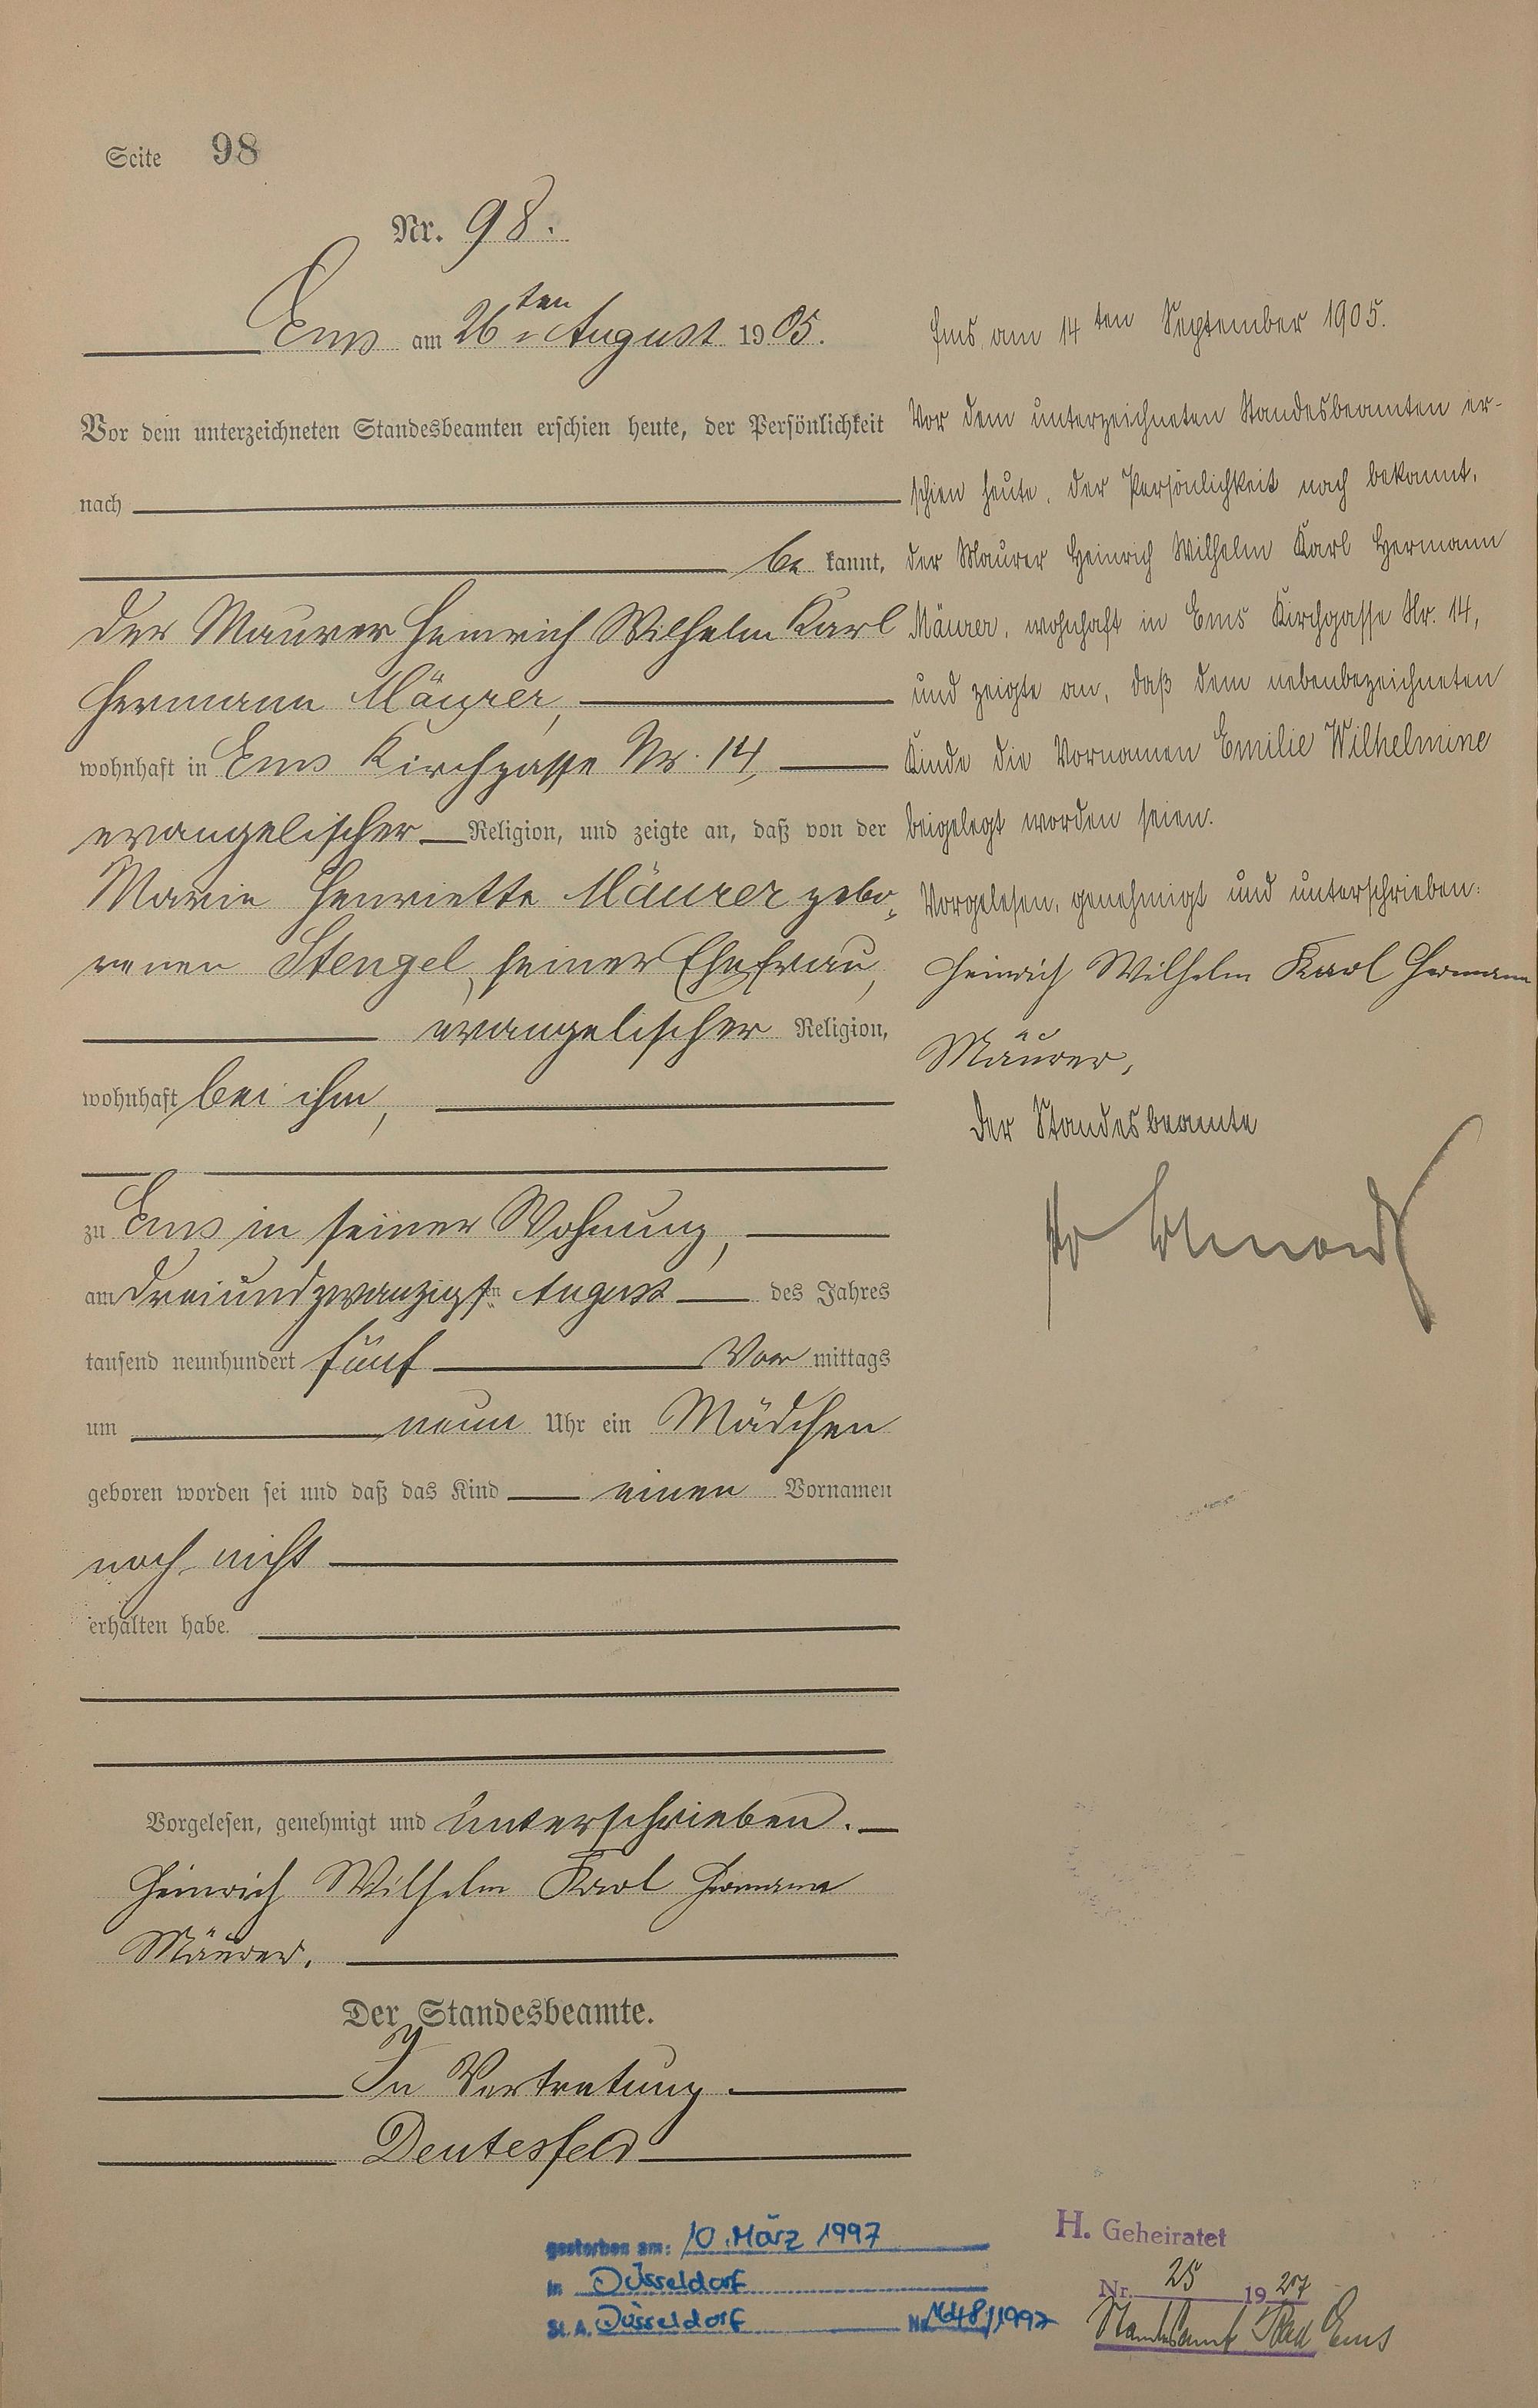 Seite 98
Nr. 98.
Ems am 26ten August 1905.
Vor dem unterzeichneten Standesbeamten erschien heute, der Persönlichkeit
nach
be kannt,
der Maurer Heinrich Wilhelm Karl
Hermann Mäurer,
wohnhaft in Ems Kirchgasse Nr. 14,
evangelischer Religion, und zeigte an, daß von der
Marie Henriette Mäurer gebo-
renen Stengel, seiner Ehefrau,
evangelischer Religion,
wohnhaft bei ihm,
zu Ems in seiner Wohnung,
am dreiundzwanzigsten August des Jahres
tausend neunhundert fünf Vor mittags
um neun Uhr ein Mädchen
geboren worden sei und daß das Kind einen Vornamen
noch nicht
erhalten habe.
Vorgelesen, genehmigt und unterschrieben.
Heinrich Wilhelm Karl Hermann
Mäurer.
Der Standesbeamte.
In Vertretung
Deutesfeld
Ems, am 14ten September 1905.
Vor dem unterzeichneten Standesbeamten er-
schien heute, der Persönlichkeit nach bekannt,
der Maurer Heinrich Wilhelm Karl Hermann
Mäurer, wohnhaft in Ems Kirchgasse Nr. 14,
und zeigte an, daß dem nebenbezeichneten
Kinde die Vornamen Emilie Wilhelmine
beigelegt worden seien.
Vorgelesen, genehmigt und unterschrieben:
Heinrich Wilhelm Karl Hermann
Mäurer,
Der Standesbeamte
gestorben am: 10. März 1997
in Düsseldorf
St. A. Düsseldorf Nr. 1648/1997
H. Geheiratet
Nr. 25 1927
Standesamt Bad Ems